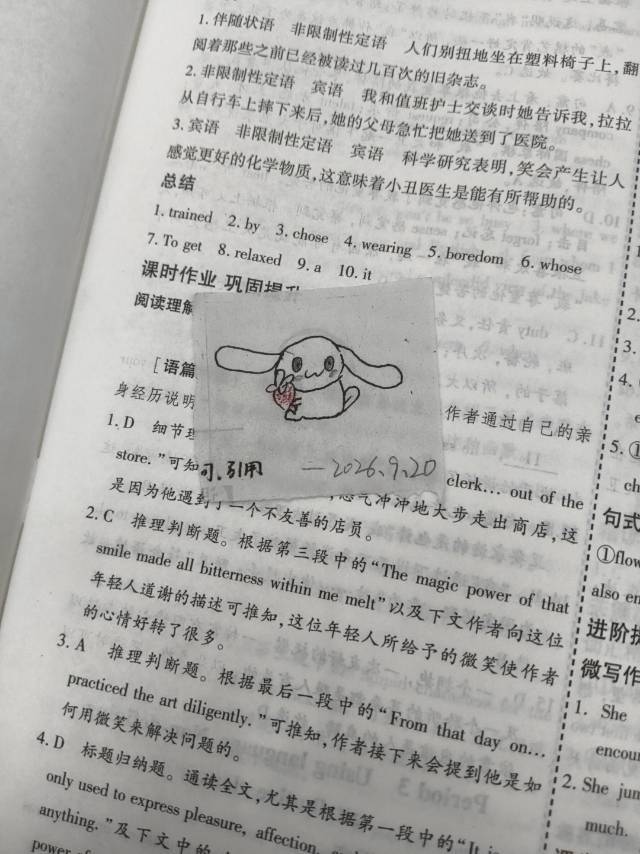 1. 伴随状语 非限制性定语 人们别扭地坐在塑料椅子上,翻
阅着那些之前已经被读过几百次的旧杂志。
2. 非限制性定语 宾语 我和值班护士交谈时她告诉我,拉拉
从自行车上摔下来后,她的父母急忙把她送到了医院。
3. 宾语 非限制性定语 宾语 科学研究表明,笑会产生让人
感觉更好的化学物质,这意味着小丑医生是能有所帮助的。
总结
1. trained 2. by 3. chose 4. wearing 5. boredom 6. whose
7. To get 8. relaxed 9. a 10. it
课时作业 巩固提升
阅读理解
[语篇
作者通过自己的亲
身经历说明
1. D 细节理
clerk… out of the
store.”可知
怒气冲冲地大步走出商店,这
是因为他遇到了一个不友善的店员。
可引用 —2026.9.20
2. C 推理判断题。根据第三段中的“The magic power of that
smile made all bitterness within me melt”以及下文作者向这位
年轻人道谢的描述可推知,这位年轻人所给予的微笑使作者
的心情好转了很多。
3. A 推理判断题。根据最后一段中的“From that day on…
practiced the art diligently.”可推知,作者接下来会提到他是如
何用微笑来解决问题的。
4. D 标题归纳题。通读全文,尤其是根据第一段中的“It is
only used to express pleasure, affection,
anything.”及下文中的
power of
2.
3.
4.
5. ①
ch
句式
①flow
also en
进阶提
微写作
1. She
encour
2. She jum
much.